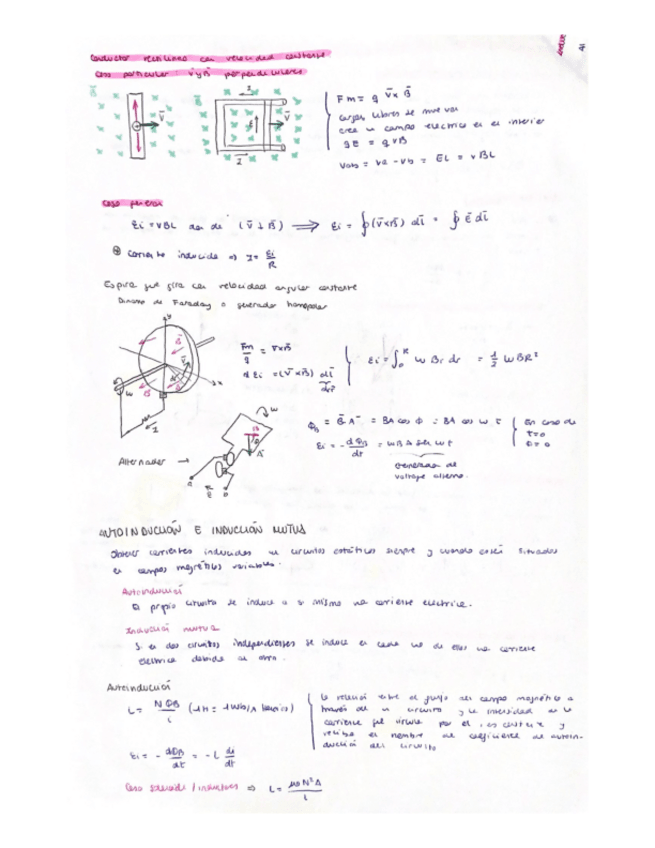 41
Conductor rectilíneo con velocidad constante
Caso particular: v̄ y B̄ perpendiculares
B̄ V̄ B̄ I V̄ I
Fm = q v̄ x B̄
cargas libres se mueven
crea un campo electrico en el interior
qE = qvB
Vab = Va - Vb = EL = vBL
Caso general
Ei = vBL donde (v̄ ⊥ B̄) ⟹ Ei = ∮(v̄xB̄) dl̄ = ∮ ē dl̄
Corriente inducida ⇒ I = Ei/R
Espira que gira con velocidad angular constante
Dinamo de Faraday o generador homopolar
y B̄ x B̄ w I
Fm/q = v̄xB̄
dEi = (v̄xB̄) dl̄
dr
Ei = ∫₀ᴿ w Br dr = 1/2 wBR²
w B A
ΦB = B̄ Ā = BA cos Φ = BA cos w t
Ei = - dΦB/dt = wBA sen wt
En caso de
t=0
Generador de
voltaje alterno.
Alternador →
a b
AUTOINDUCCIÓN E INDUCCIÓN MUTUA
Obtener corrientes inducidas en circuitos estáticos siempre y cuando estén situados
en campos magnéticos variables.
Autoinducción
El propio circuito se induce a si mismo una corriente electrica.
Inducción mutua
Si en dos circuitos independientes se induce en cada uno de ellos una corriente
electrica debida al otro.
Autoinducción
L = NΦB/i (1H = 1Wb/A henrio)
La relación entre el flujo del campo magnético a
través de un circuito y la intensidad de la
corriente que circula por el, es constante y
recibe el nombre de coeficiente de autoin-
ducción del circuito
Ei = - dΦB/dt = -L di/dt
Caso solenoide / inductores ⇒ L = μ0 N² A/l